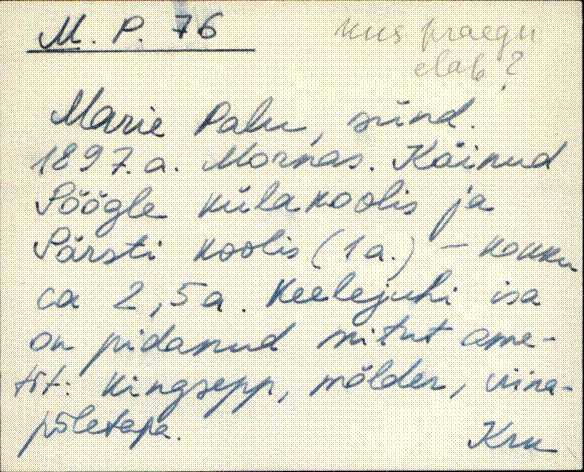 M. P. 76
kus praegu
elab?
Marie Palu, sünd.
1897.a. Mornas. Käinud
Söögle külakoolis ja
Pärsti koolis (1a.) – kokku
ca 2,5a. Keelejuhi isa
on pidanud mitut ame-
tit: kingsepp, mölder, viina-
põletaja.
Krk